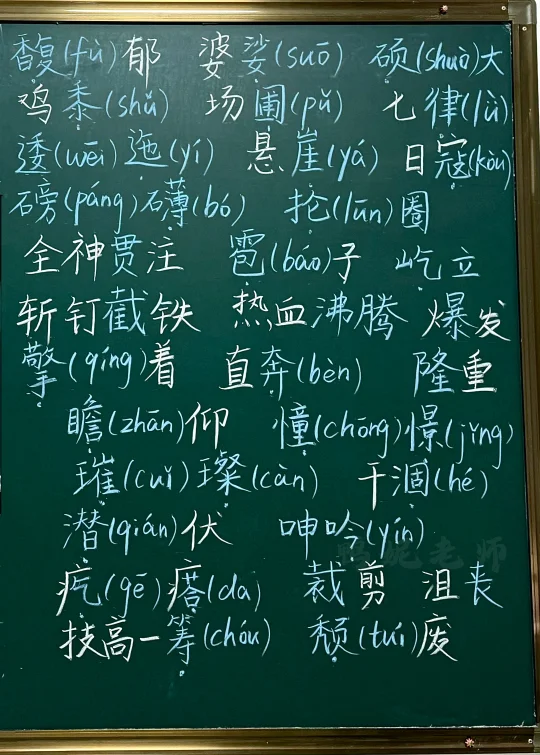 馥(fù)郁 婆娑(suō) 硕(shuò)大
鸡黍(shǔ) 场圃(pǔ) 七律(lǜ)
逶(wēi)迤(yí) 悬崖(yá) 日寇(kòu)
磅(páng)礴(bó) 抡(lūn)圈
全神贯注 雹(báo)子 屹立
斩钉截铁 热血沸腾 爆发
擎(qíng)着 直奔(bèn) 隆重
瞻(zhān)仰 憧(chōng)憬(jǐng)
璀(cuǐ)璨(càn) 干涸(hé)
潜(qián)伏 呻吟(yín)
疙(gē)瘩(da) 裁剪 沮丧
技高一筹(chóu) 颓(tuí)废